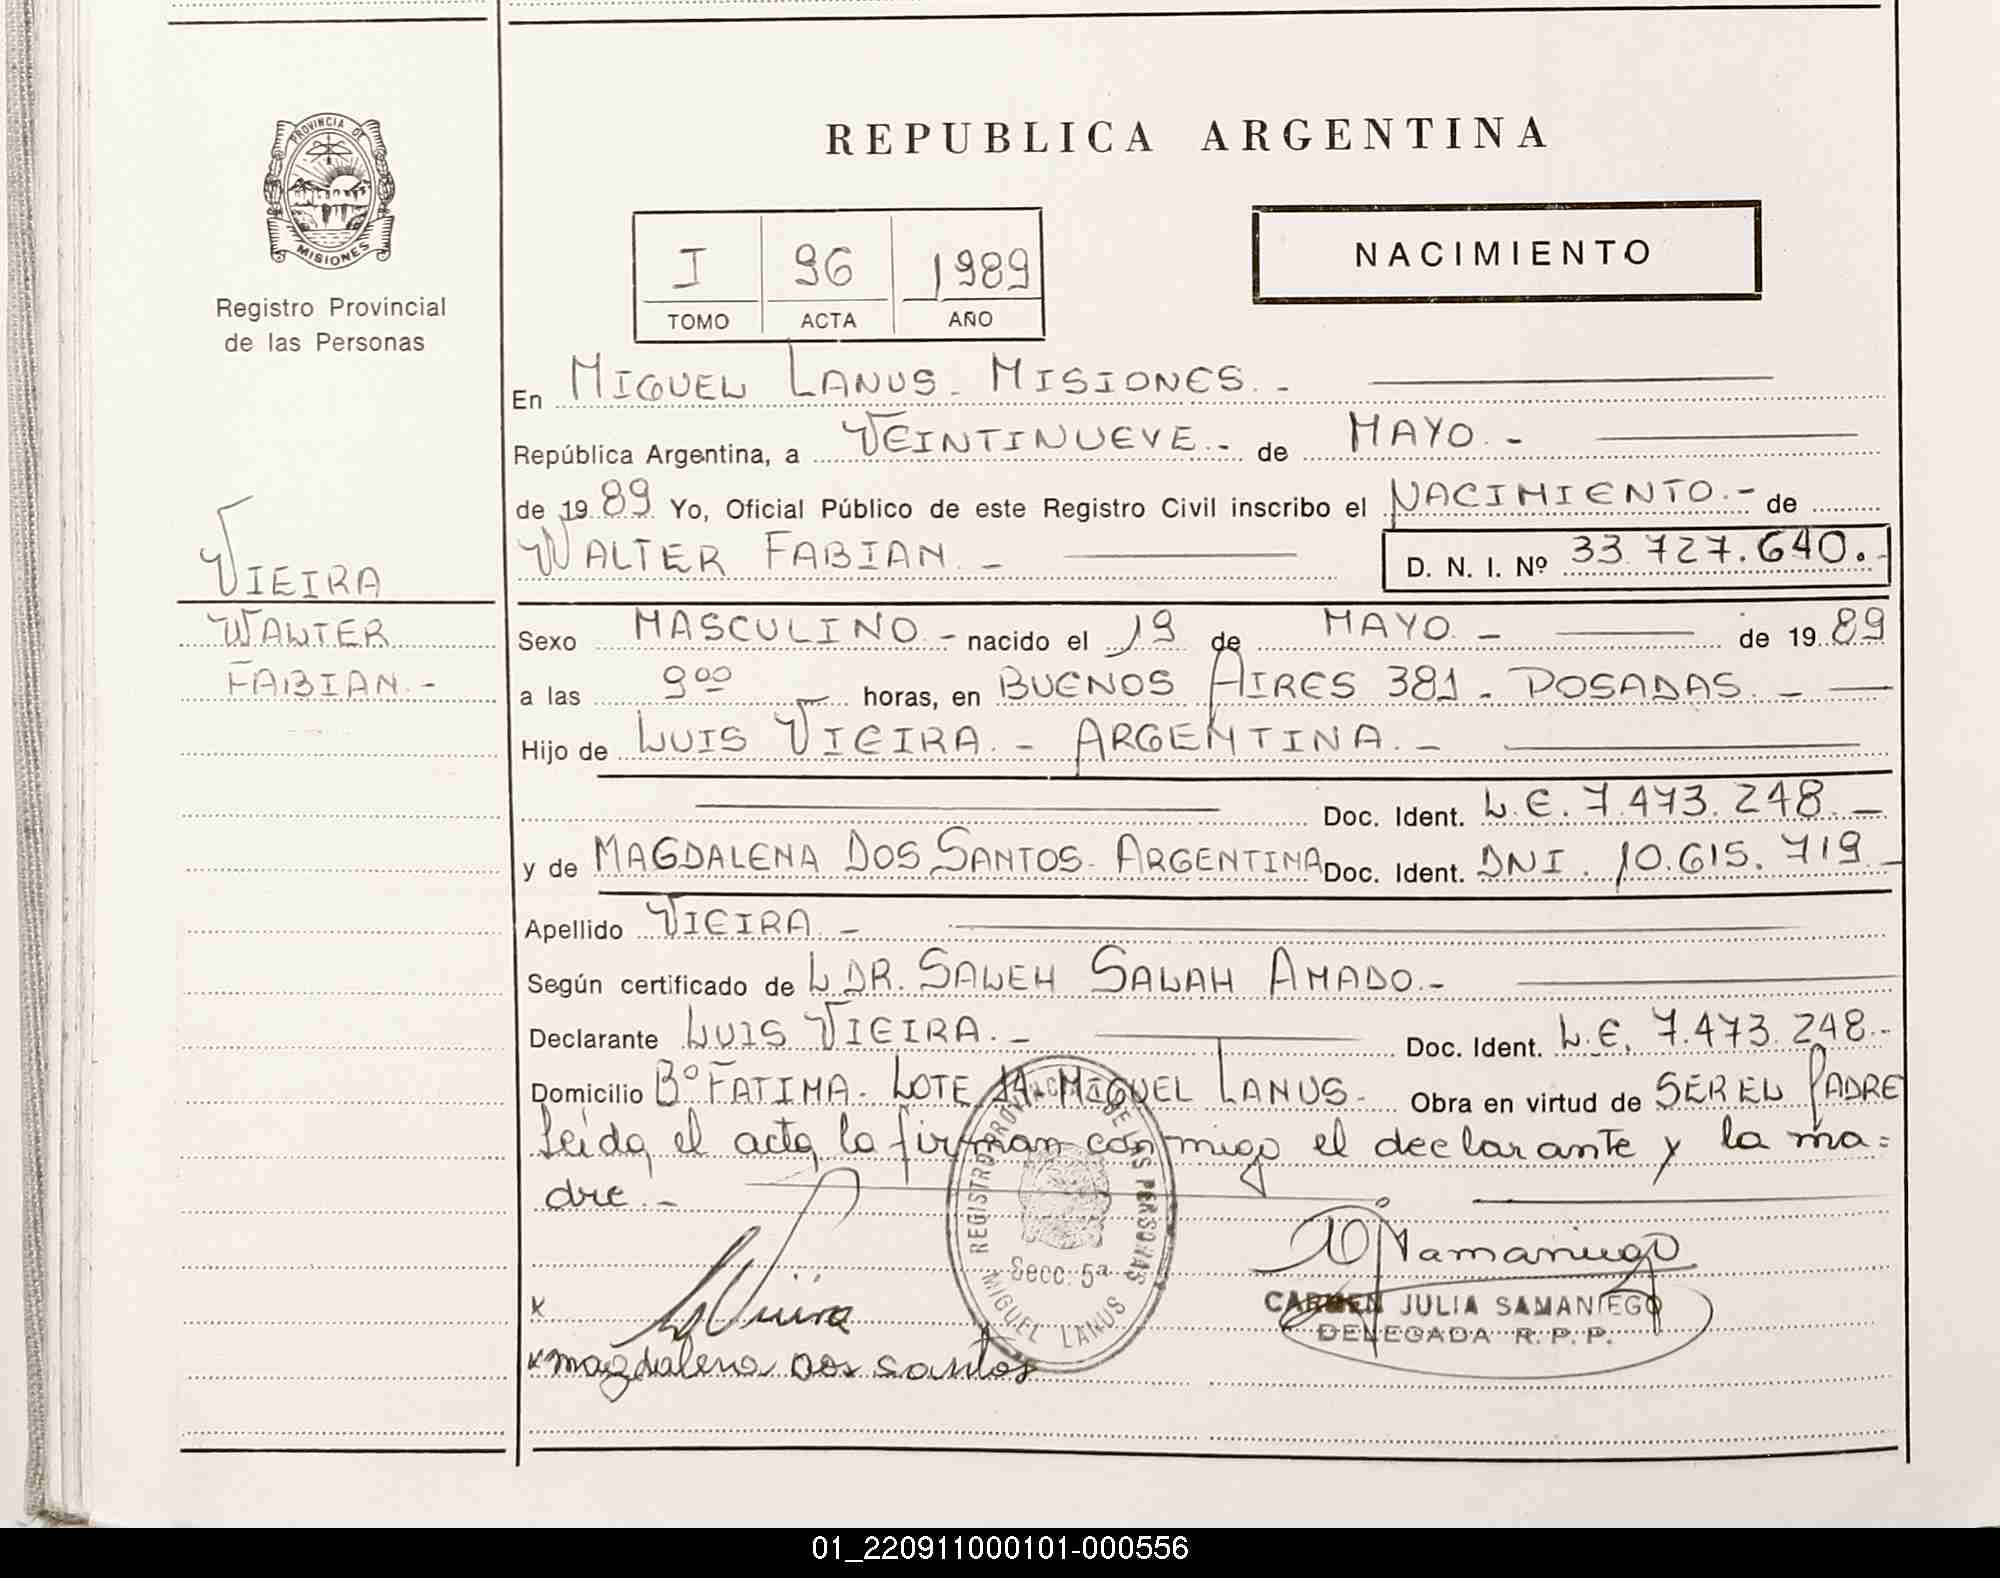 PROVINCIA DE
MISIONES
Registro Provincial
de las Personas
VIEIRA
WALTER
FABIAN.-
REPUBLICA ARGENTINA
I 96 1989
TOMO ACTA AÑO
NACIMIENTO
En MIGUEL LANUS - MISIONES.-
República Argentina, a VEINTINUEVE.- de MAYO.-
de 1989 Yo, Oficial Público de este Registro Civil inscribo el NACIMIENTO.- de
WALTER FABIAN.- D. N. I. Nº 33.727.640.-
Sexo MASCULINO.- nacido el 19 de MAYO.- de 1989
a las 9 00 horas, en BUENOS AIRES 381 - POSADAS.-
Hijo de LUIS VIEIRA.- ARGENTINA.-
Doc. Ident. L.E. 7.473.248.-
y de MAGDALENA DOS SANTOS - ARGENTINA Doc. Ident. DNI. 10.615.719-
Apellido VIEIRA.-
Según certificado de L DR. SALEH SALAH AMADO.-
Declarante LUIS VIEIRA.- Doc. Ident. L.E. 7.473.248-
Domicilio Bº FATIMA - LOTE 14 - MIGUEL LANUS - Obra en virtud de SER EL PADRE
Leída el acta la firman conmigo el declarante y la ma=
dre.-
REGISTRO PROVINCIAL DE LAS PERSONAS
Secc. 5ª
MIGUEL LANUS
x L Vieira
x magdalena dos santos
Samaniego
CARMEN JULIA SAMANIEGO
DELEGADA R. P. P.
01_220911000101-000556